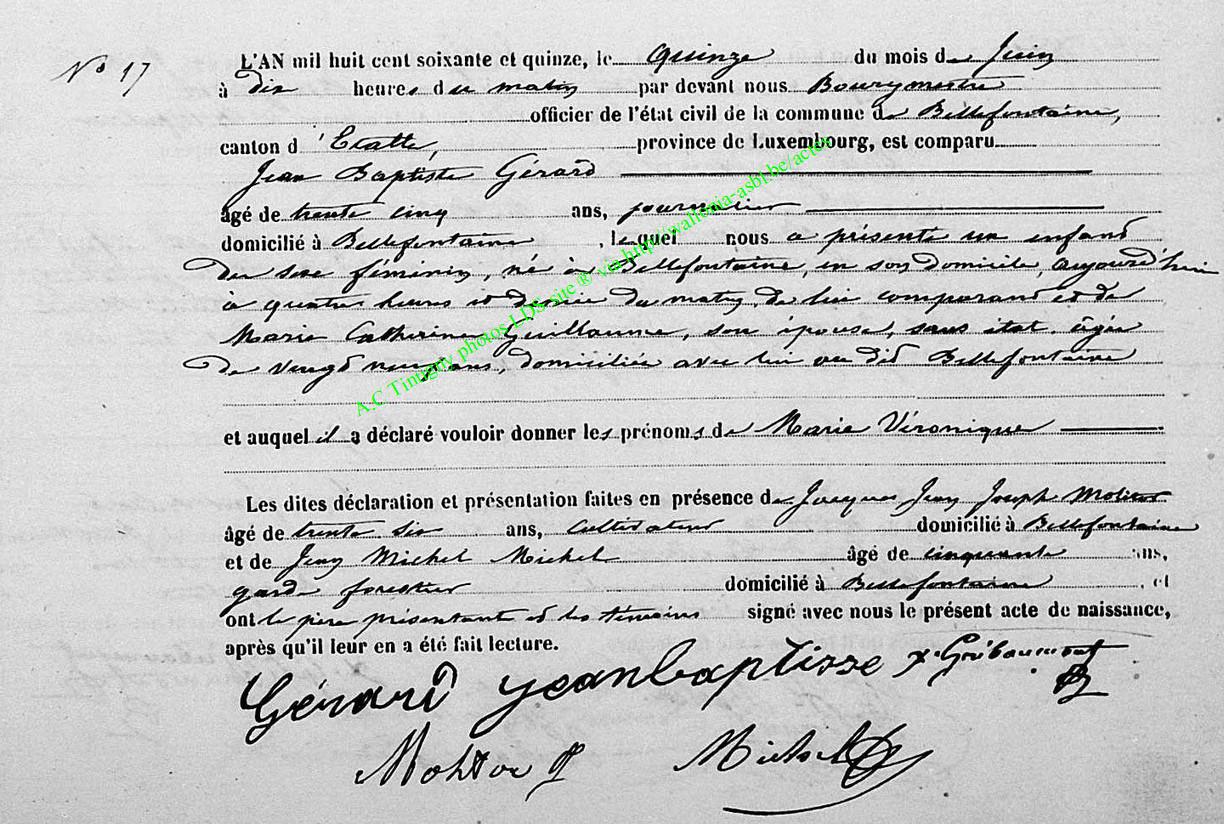 No 17
L'AN mil huit cent soixante et quinze, le quinze du mois de Juin
à dix heures du matin par devant nous Bourgmestre
officier de l'état civil de la commune de Bellefontaine,
canton d'Etalle, province de Luxembourg, est comparu
Jean Baptiste Gérard
âgé de trente cinq ans, journalier
domicilié à Bellefontaine, lequel nous a présenté un enfant
du sexe féminin, né à Bellefontaine, en son domicile, aujourd'hui
à quatre heures et demie du matin, de lui comparant et de
Marie Catherine Guillaume, son épouse, sans état, âgée
de vingt neuf ans, domiciliée avec lui au dit Bellefontaine
et auquel il a déclaré vouloir donner les prénoms de Marie Véronique
Les dites déclaration et présentation faites en présence de Jacques Jean Joseph Molitor
âgé de trente six ans, cultivateur domicilié à Bellefontaine
et de Jean Michel Michel âgé de cinquante ans,
garde forestier domicilié à Bellefontaine, et
ont le père présentant et les témoins signé avec nous le présent acte de naissance,
après qu'il leur en a été fait lecture.
Gérard Jeanbaptisse Gribaumont
Molitor Michel
A.C Tintigny photos LDS site ® via http://wallonia-asbl.be/actes